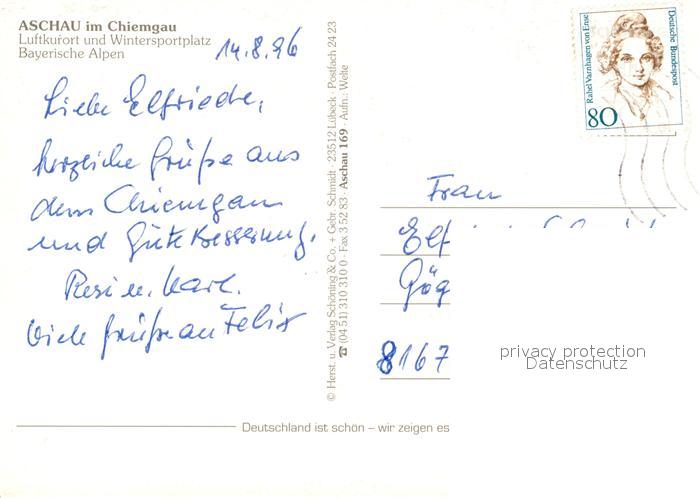 ASCHAU im Chiemgau
Luftkufort und Wintersportplatz
Bayerische Alpen
14.8.96
Liebe Elfriede,
herzliche Grüße aus
dem Chiemgau
und Gute Besserung.
Resi u. Karl.
Viele Grüße an Felix
© Herst. u. Verlag Schöning & Co. + Gebr. Schmidt · 23512 Lübeck · Postfach 24 23
☎ (04 51) 310 310 0 · Fax 3 52 83 · Aschau 169 · Aufn.: Welte
Rahel Varnhagen von Ense
Deutsche Bundespost
80
Frau
Elf
Gög
8167
privacy protection
Datenschutz
Deutschland ist schön – wir zeigen es